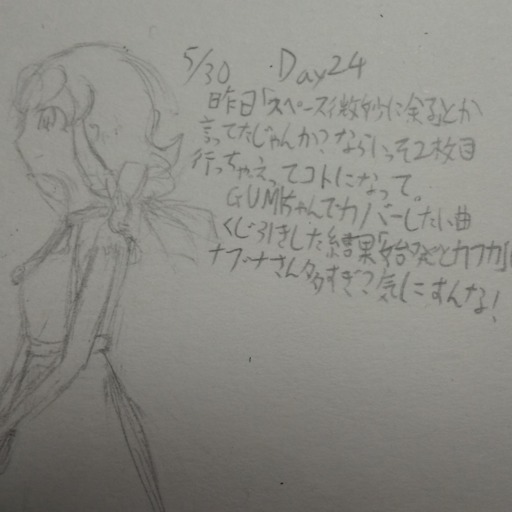 5/30 Day24
昨日「スペース微妙に余る」とか
言ってたじゃんか？ならいっそ2枚目
行っちゃえってコトになって。
GUMIちゃんでカバーしたい曲
くじ引きした結果「始発とカフカ」
ナブナさん多すぎ？気にすんな！